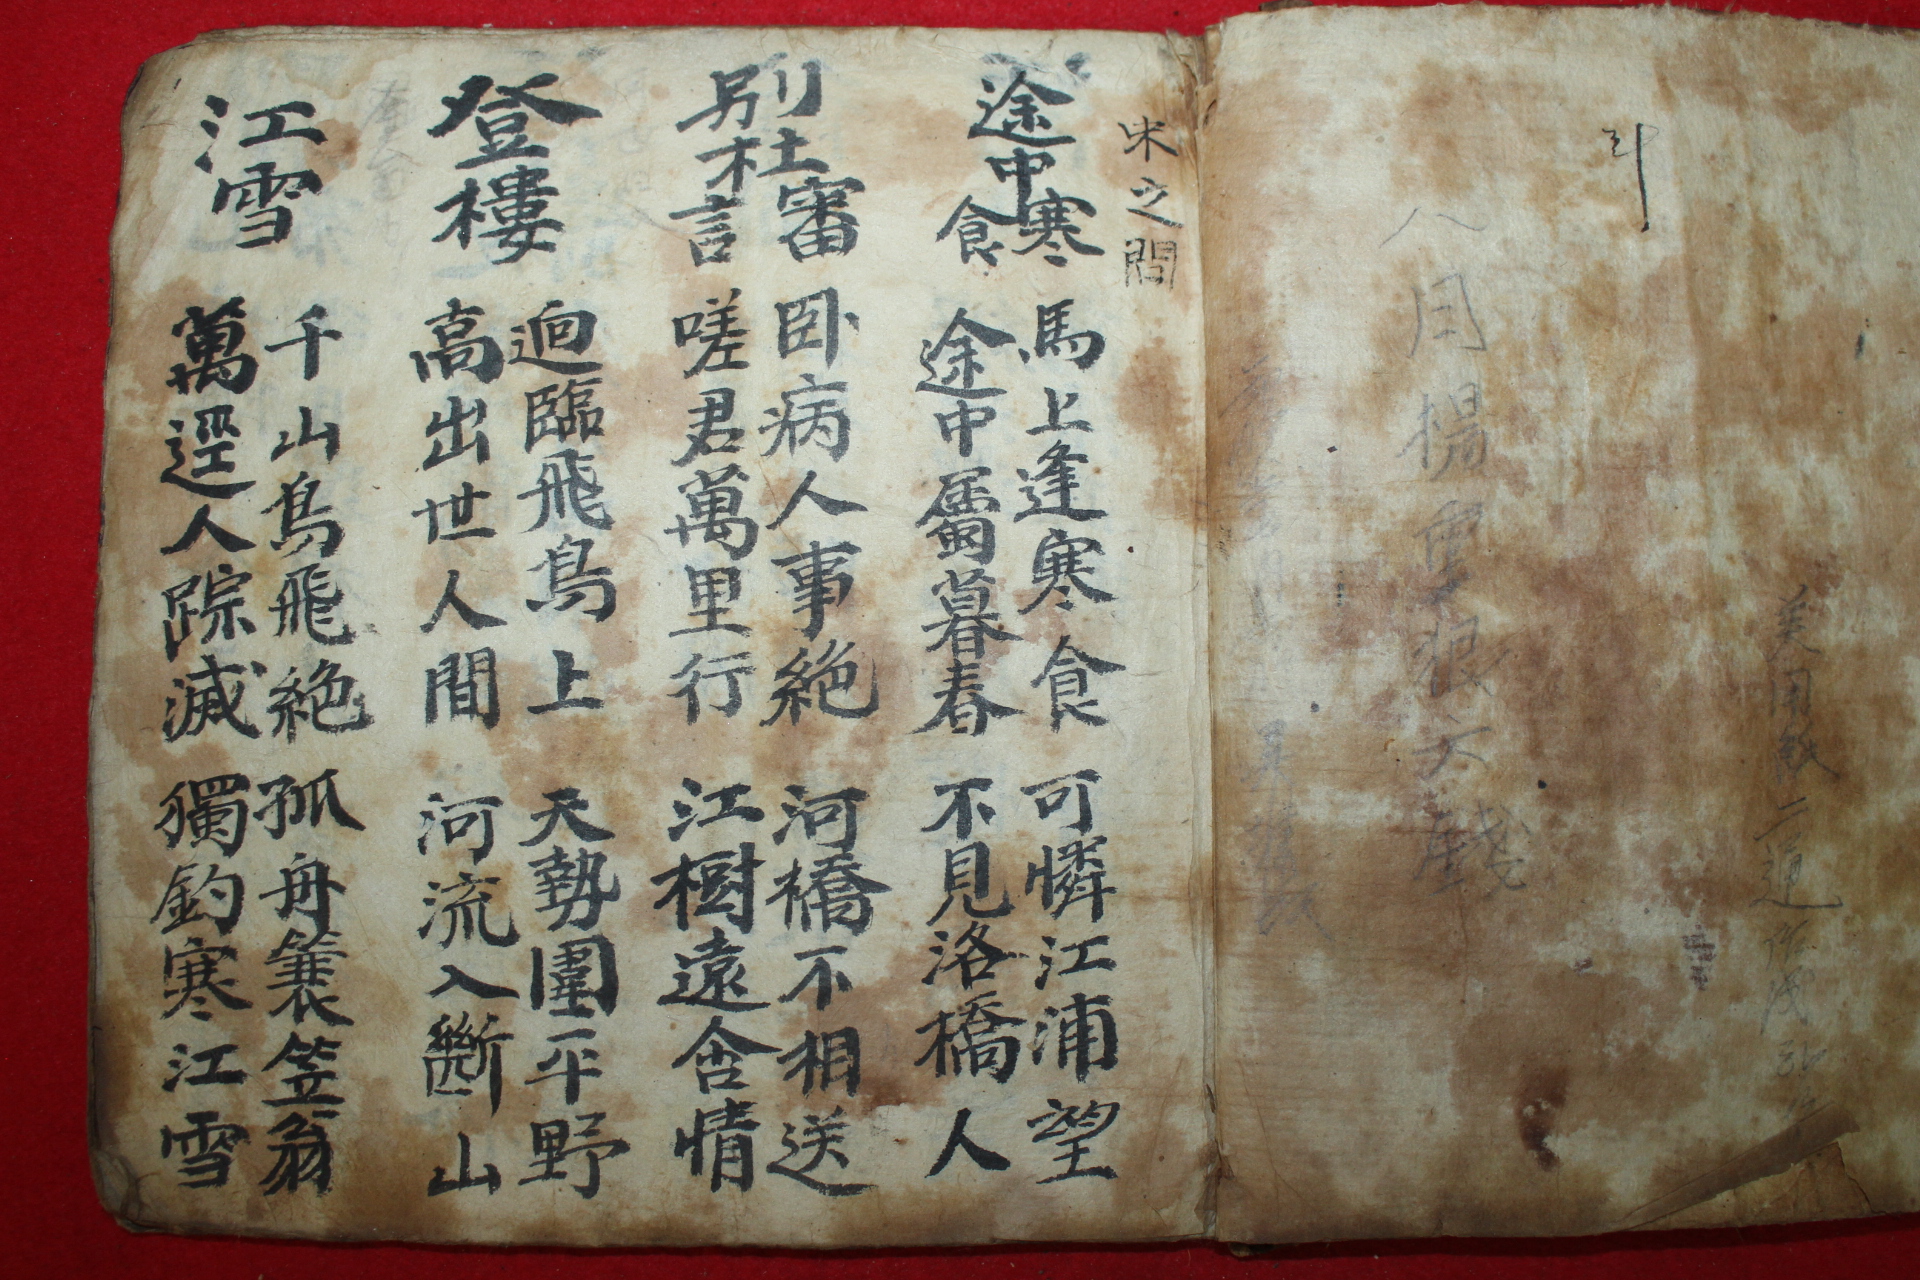 宋之問
途中寒食
馬上逢寒食
途中屬暮春
可憐江浦望
不見洛橋人
別杜審言
卧病人事絶
嗟君萬里行
河橋不相送
江樹遠含情
登樓
逈臨飛鳥上
高出世人間
天勢圍平野
河流入斷山
江雪
千山鳥飛絶
萬逕人踪滅
孤舟簑笠翁
獨釣寒江雪